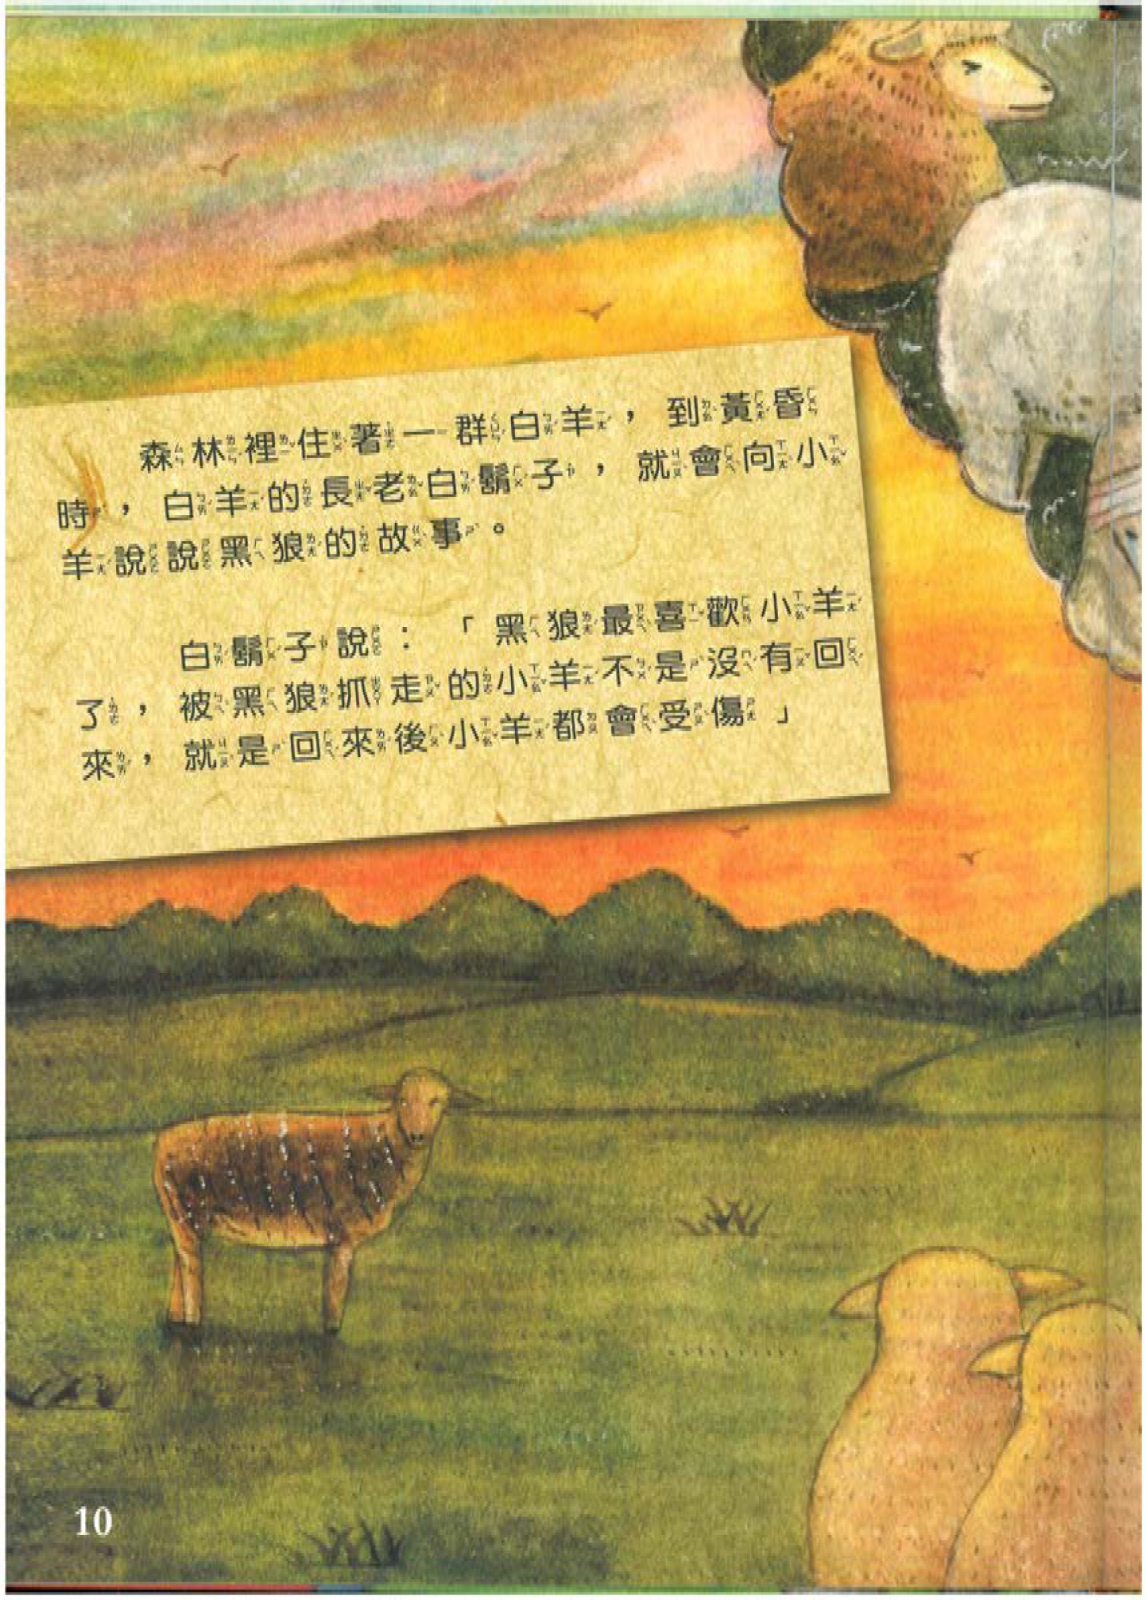 森林裡住著一群白羊，到黃昏
時，白羊的長老白鬍子，就會向小
羊說說黑狼的故事。
白鬍子說：「黑狼最喜歡小羊
了，被黑狼抓走的小羊不是沒有回
來，就是回來後小羊都會受傷。」
10